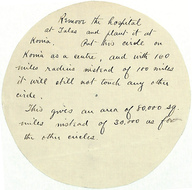 Remove the hospital
at Jales and plant it at
Konia. Put his circle on
Konia as a centre, and with 100
miles radius instead of 100 miles
it will still not touch any other
circle.
This gives an area of 50,000 sq.
miles instead of 30,000 as for
the other circles